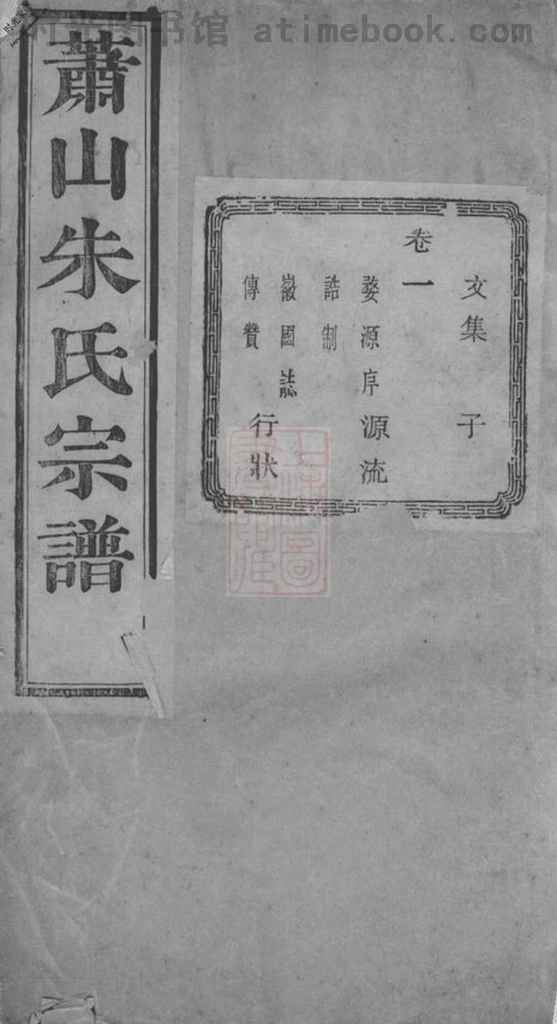 书馆 atimebook.com
文集 子
卷一
婺源序 源流
誥制
徽國誌 行狀
傳贊
蕭山朱氏宗譜